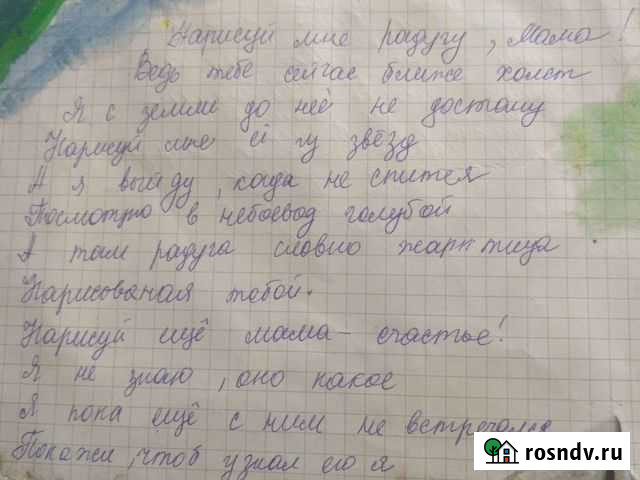 Нарисуй мне радугу, Мама!
Ведь тебе сейчас ближе холст
Я с земли до неё не достану
Нарисуй мне её у звёзд
А я выйду, когда не спится
Посмотрю в небосвод голубой
А там радуга словно жарптица
Нарисованая тобой.
Нарисуй ещё мама - счастье!
Я не знаю, оно какое
Я пока ещё с ним не встречался
Покажи, чтоб узнал его я
rosndv.ru